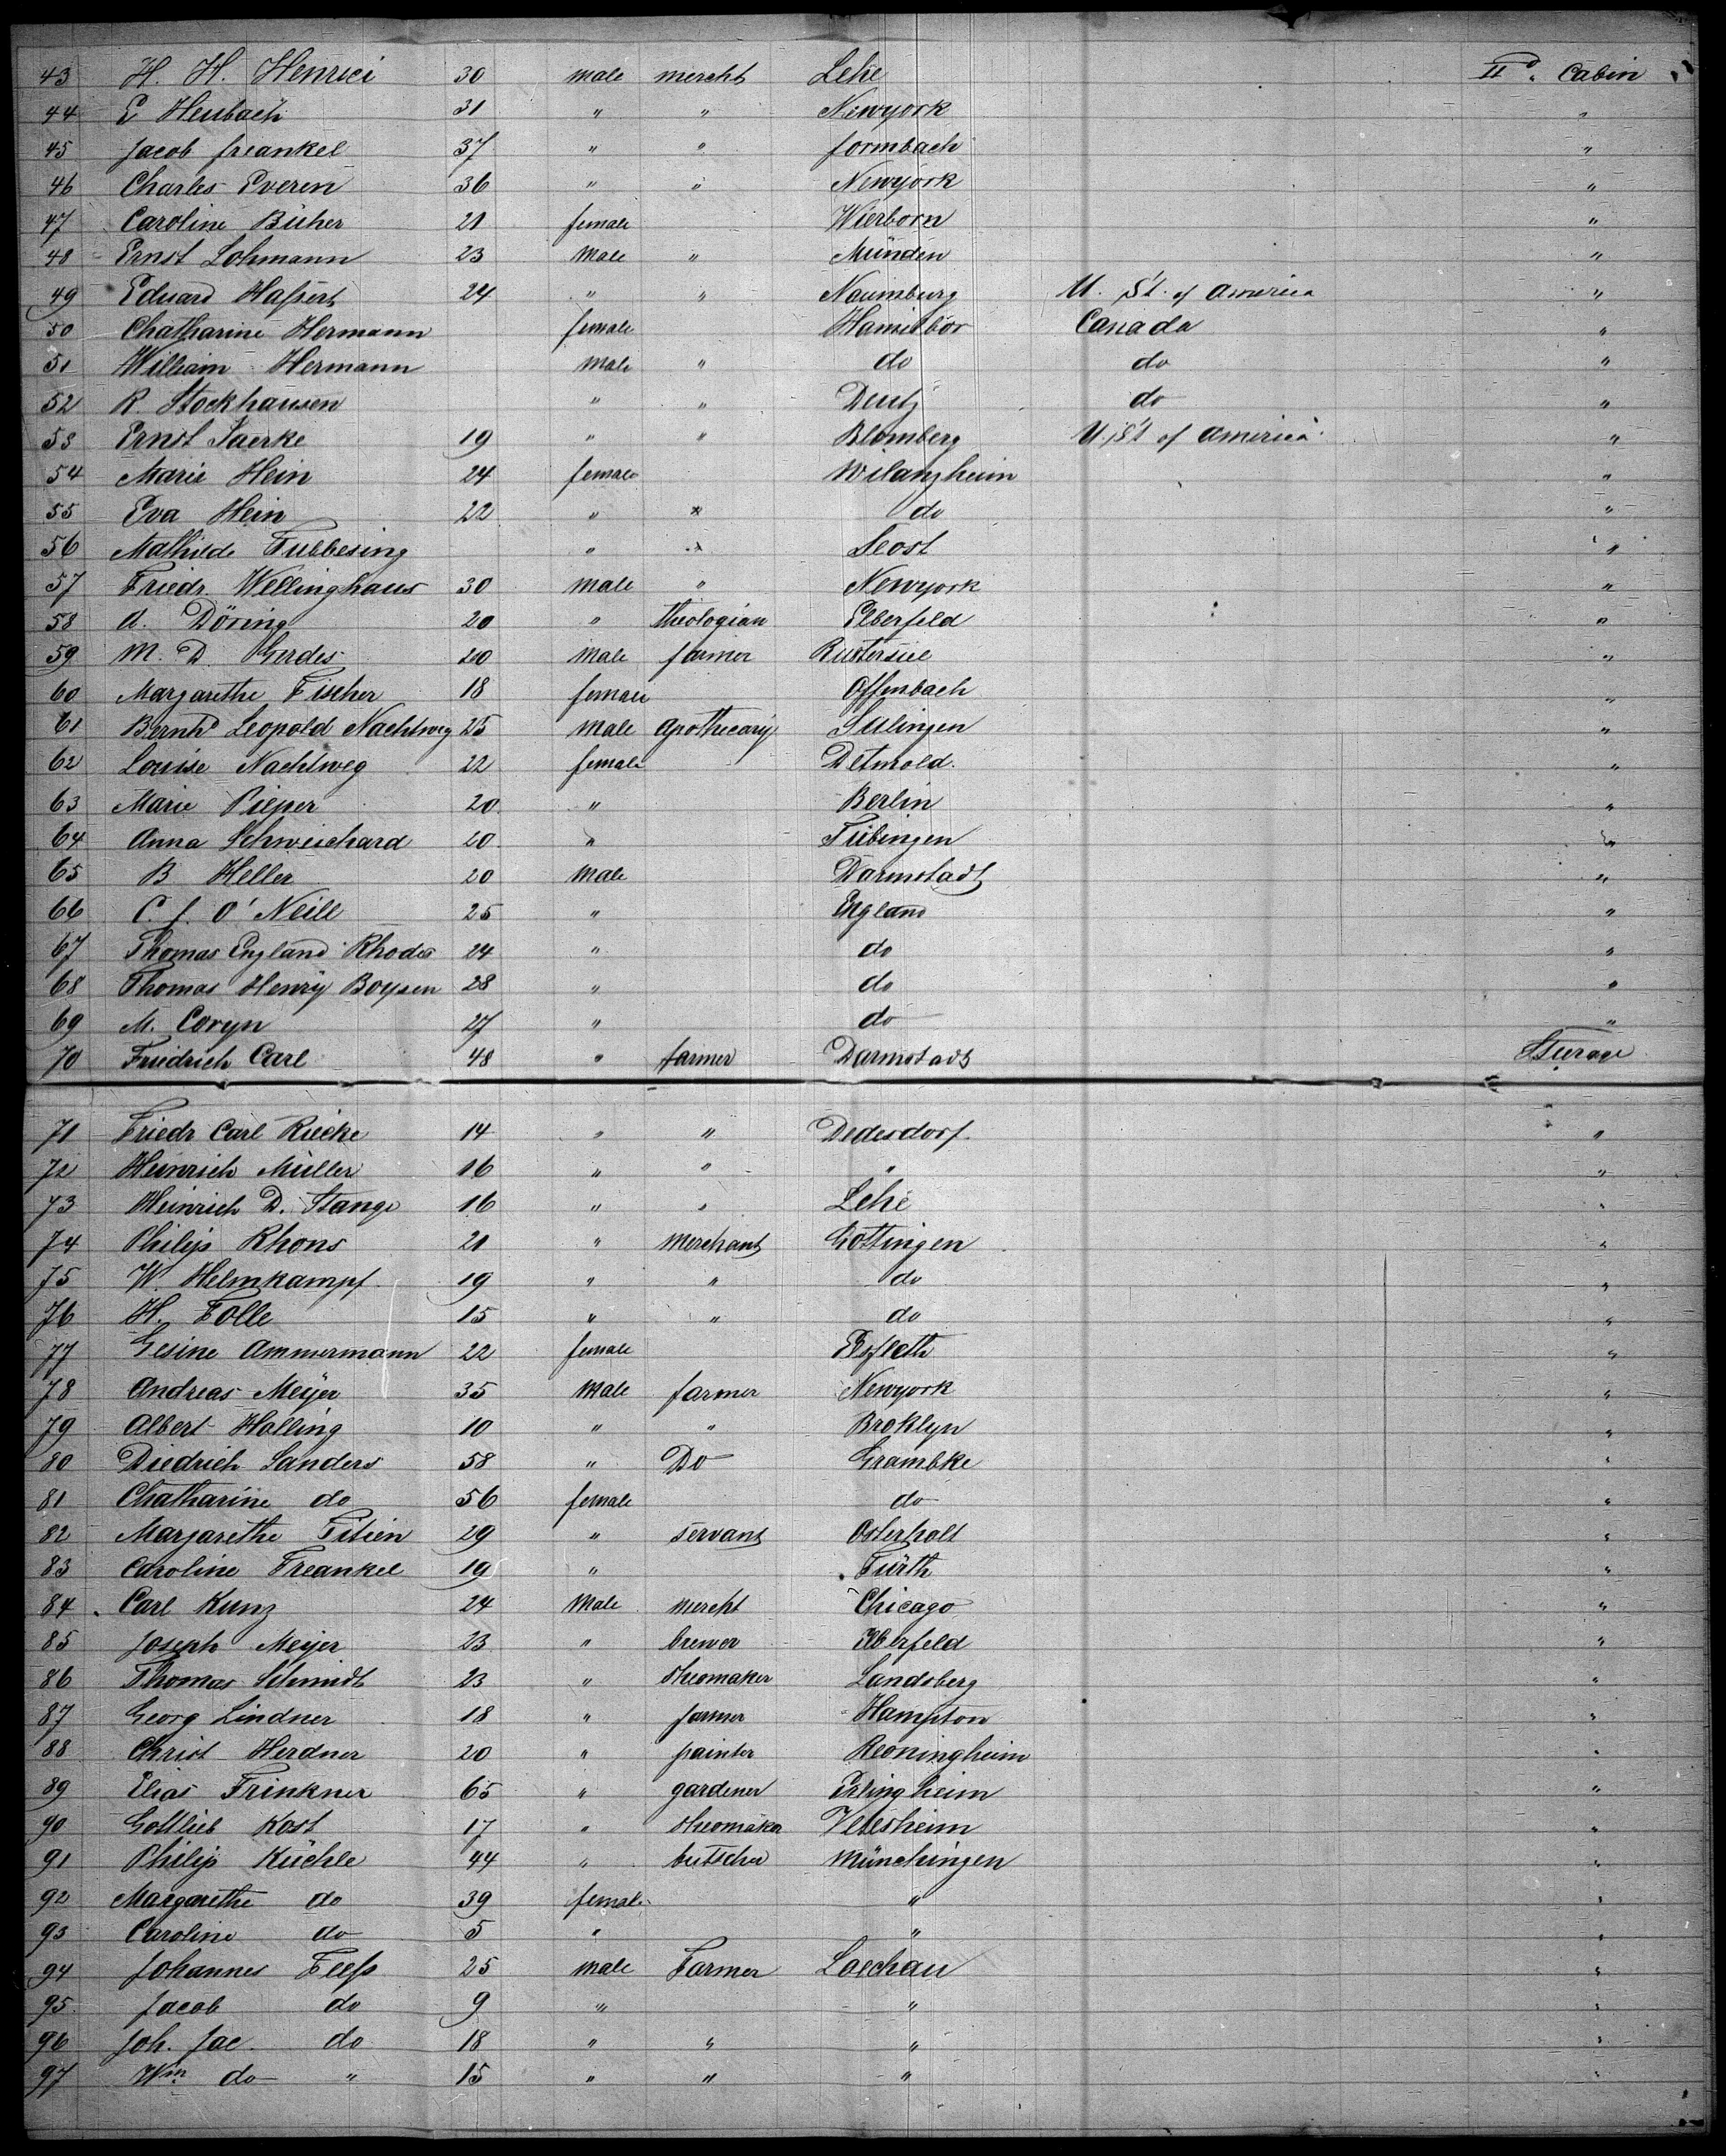 43 H. H. Henrici 30 male mercht Lehe IId. Cabin
44 E Heubach 31 " " Newyork "
45 Jacob Freankel 37 " " Formbach "
46 Charles Everen 36 " " Newyork "
47 Caroline Büher 21 female Wierborn "
48 Ernst Lohmann 23 Male " Münden "
49 Eduard Hassert 24 " " Naumburg U. St. of America "
50 Chatharine Hermann female Canada "
51 William Hermann Male " do do "
52 R. Stockhausen " " Deutz do "
53 Ernst Saerke 19 " " Blomberg U. St of America "
54 Marie Hein 24 female Wilanzheim "
55 Eva Hein 22 " " do "
56 Mathilde Fubbesing " " Seost "
57 Friedr. Wellinghaus 30 male " Newyork "
58 A. Döring 20 " theologian Elberfeld "
59 M. D. Gerdes 20 male farmer Rustersiel "
60 Margarethe Fischer 18 female Offenbach "
61 Bernhd Leopold Nachtweg 25 male Apothecary Sulingen "
62 Louise Nachtweg 22 female Detmold. "
63 Marie Pieper 20 " Berlin "
64 Anna Schweichard 20 " Tübingen "
65 B Heller 20 Male Darmstadt "
66 C. J. O'Neill 25 " England "
67 Thomas England Rhodes 24 " do "
68 Thomas Henry Boysen 28 " do "
69 M. Coryn 27 " do "
70 Friedrich Carl 48 " farmer Darmstadt Sterage
71 Friedr Carl Riecke 14 " " Dedesdorf "
72 Heinrich Müller 16 " " " "
73 Heinrich D. Stange 16 " " Lehe "
74 Philip Rhons 21 " Merchant Göttingen "
75 W. Helmkampf 19 " " do "
76 H. Folle 15 " " do "
77 Gesine Ammermann 22 female Elsfleth "
78 Andreas Meyer 35 Male farmer Newyork "
79 Albert Holling 10 " " Broklyn "
80 Diedrich Sanders 58 " Do Grambke "
81 Chatharine do 56 female do "
82 Margarethe Fitien 29 " servant Osterholt "
83 Caroline Freankel 19 " Fürth "
84 Carl Kunz 24 Male mercht Chicago "
85 Joseph Meyer 23 " brewer Elberfeld "
86 Thomas Schmidt 23 " sheomaker Landsberg "
87 Georg Lindner 18 " farmer Hampton "
88 Christ Herdner 20 " painter Reoningheim "
89 Elias Frinkner 65 " gardener Erlingheim "
90 Gottlieb Kost 17 " sheomaker Velesheim "
91 Philip Küchle 44 " butscher Münchingen "
92 Margarethe do 39 female " "
93 Caroline do 5 " " "
94 Johannes Feess 25 male Farmer Loechau "
95 Jacob do 9 " " "
96 Joh. Jac. do 18 " " " "
97 Wm do " 15 " " " "